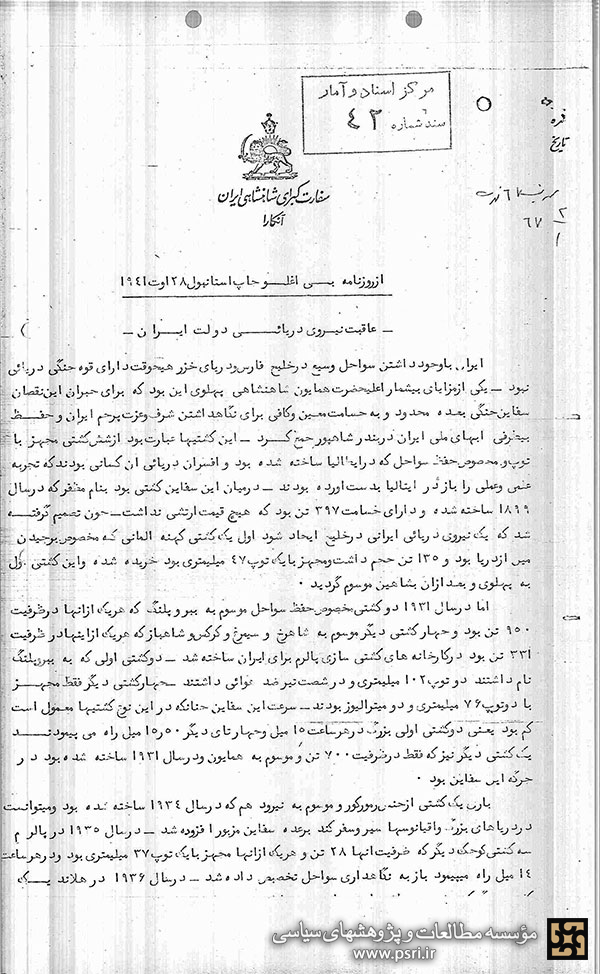 مرکز اسناد و آمار
سند شماره ۴۲
نمره
تاریخ
سفارت کبرای شاهنشاهی ایران
آنکارا
۲
۶۷
۱
از روزنامه بــی اغلــو چاپ استانبول ۲۸ اوت ۱۹۴۱
ــ عاقبت نیروی دریائــی دولت ایــران ــ
ایران باوجود داشتن سواحل وسیع در خلیج فارس و دریای خزر هیچوقت دارای قوه جنگی دریائی
نبود ــ یکی از مزایای بیشمار اعلیحضرت همایون شاهنشاهی پهلوی این بود که برای جبران این نقصان
سفاین جنگی بعده محدود و به جسامت معین و کافی برای نگاهداشتن شرف و عزت پرچم ایران و حفــظ
بیطرفی ابهای ملی ایران در بندر شاهپور جمع کــرد ــ این کشتیها عبارت بود از شش کشتی مجهز با
توپ و مخصوص حفظ سواحل که در ایطالیا ساخته شده بود و افسران دریائی ان کسانی بودند که تجربه
علمی و عملی را باز در ایتالیا بدست اورده بودند ــ درمیان این سفاین کشتی بود بنام مظفر که در سال
۱۸۹۹ ساخته شده و دارای جسامت ۳۹۷ تن بود که هیچ قیمت ارتشی نداشت ــ چون تصمیم گرفتــه
شد که یک نیروی دریائی ایرانی در خلیج ایجاد شود اول یک کشتی کهنه المانی کـه مخصوص برچیدن
مین از دریا بود و ۱۳۵ تن حجم داشت و مجهز با یک توپ ۴۷ میلیمتری بود خریده شده و این کشتی اول
به پهلوی و بعد از ان بشاهین موسوم گردید ۰
اما در سال ۱۹۳۱ دو کشتی مخصوص حفظ سواحل موسوم به ببر و پلنگ که هریک از انها در ظرفیت
۹۵۰ تن بود و چهار کشتی دیگر موسوم به شاهرخ و سیمرغ و کرکس و شاهباز که هریک از اینها در ظرفیت
۳۳۱ تن بود در کارخانه های کشتی سازی پالرم برای ایران ساخته شد ــ دو کشتی اولی که به ببر و پلنگ
نام داشتند دو توپ ۱۰۲ میلیمتری و در شصت تیر ضد هوائی داشتند ــ چهار کشتی دیگر فقط مجهــز
با دو توپ ۷۶ میلیمتری و دو میترالیوز بودند ــ سرعت این سفاین چنانکه در این نوع کشتیها معمول است
کم بود یعنی دو کشتی اولی بزرگ در هر ساعت ۱۵ میل و چهار تای دیگر ۱۵٫۵۰ میل راه می پیمودنــد
یک کشتی دیگر نیز که فقط در ظرفیت ۷۰۰ تن و موسوم به همایون و در سال ۱۹۳۱ ساخته شده بود در
جرگه این سفاین بود ۰
باری یک کشتی از جنس رمورکور و موسوم به نیرود هم که در سال ۱۹۳۴ ساخته شده بود و میتوانست
در دریاهای بزرگ و اقیانوسها سیر و سفر کند بر عده سفاین مزبور افزوده شد ــ در سال ۱۹۳۵ در پالرم
سه کشتی کوچک دیگر که ظرفیت انها ۲۸ تن و هریک از انها مجهز با یک توپ ۳۷ میلیمتری بود و در هر ساعت
۱۴ میل راه میپیمود باز به نگاهداری سواحل تخصیص داده شد ــ در سال ۱۹۳۶ در هلاند یــک
مؤسسه مطالعات و پژوهشهای سیاسی
www.psri.ir